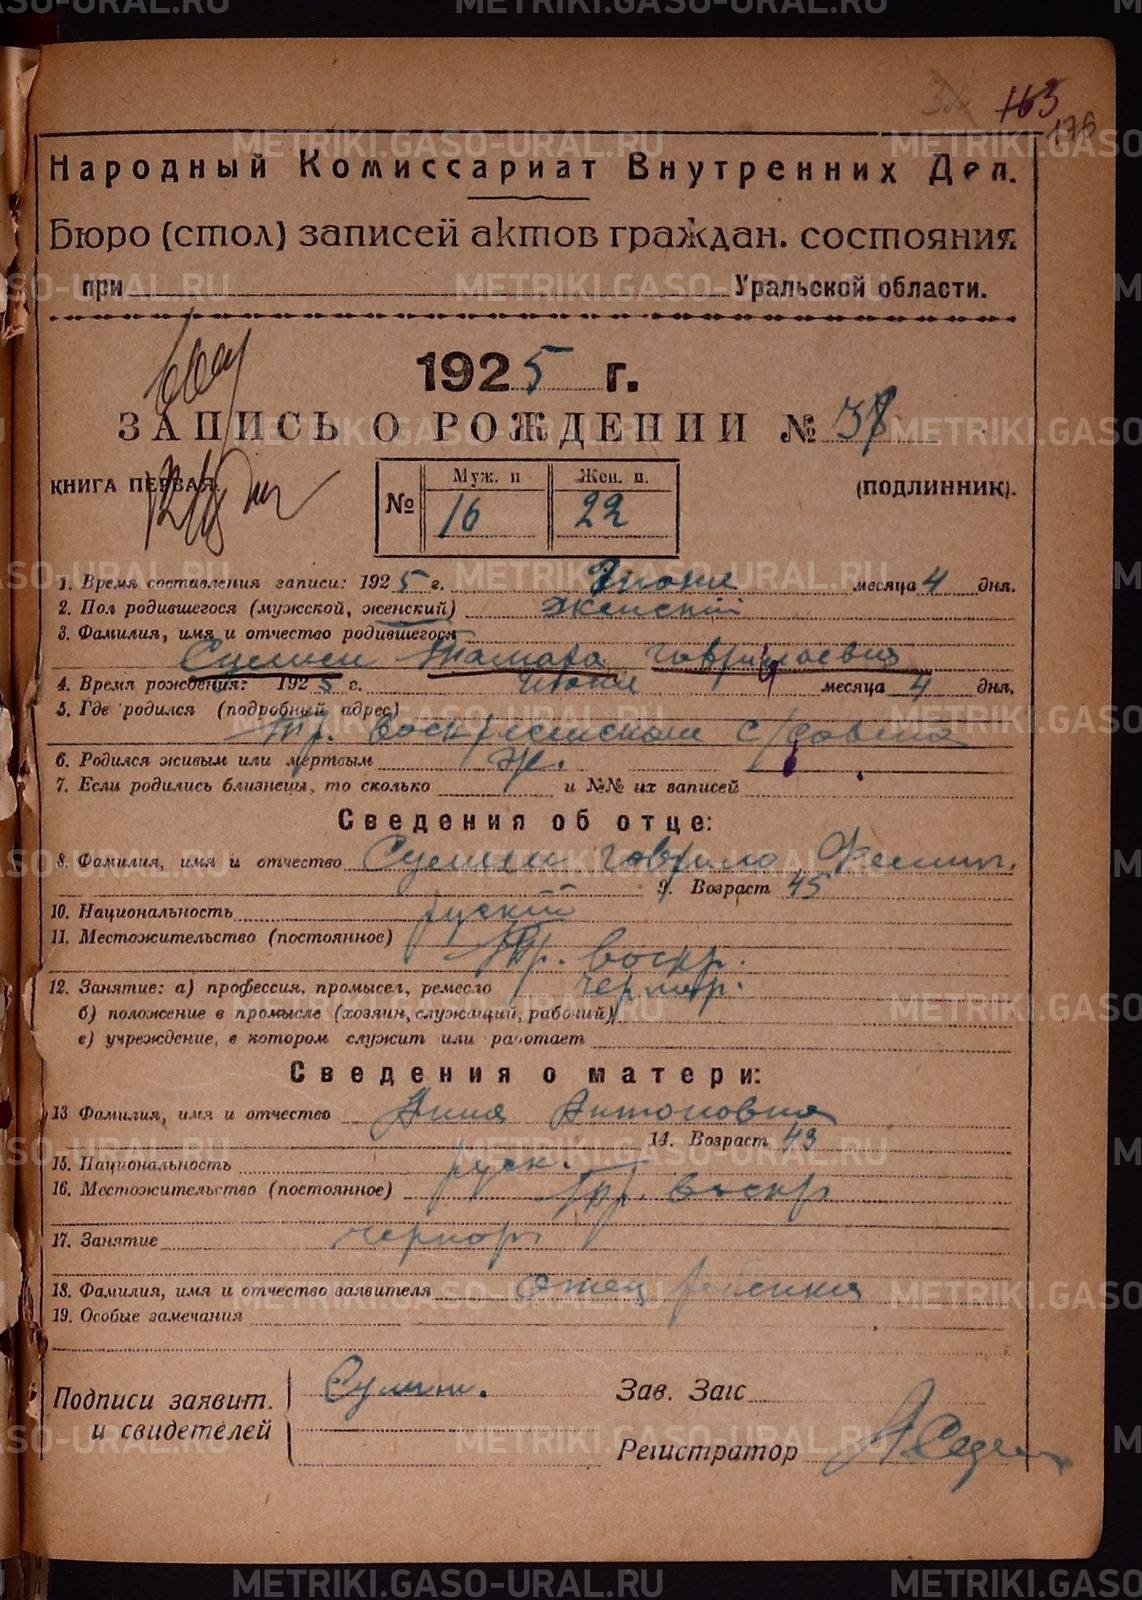 163
176
Народный Комиссариат Внутренних Дел.
Бюро (стол) записей актов граждан. состояния
при Уральской области.
1925 г.
ЗАПИСЬ О РОЖДЕНИИ № 38
КНИГА ПЕРВАЯ. (ПОДЛИННИК).
№ Муж. п Жен. п.
16 22
1. Время составления записи: 1925 г. Июня месяца 4 дня.
2. Пол родившегося (мужской, женский) женский
3. Фамилия, имя и отчество родившегося
Тамара
4. Время рождения: 1925 г. Июня месяца 4 дня.
5. Где родился (подробный адрес)
Тр. Воскресенского
6. Родился живым или мертвым ж.
7. Если родились близнецы, то сколько и №№ их записей
Сведения об отце:
8. Фамилия, имя и отчество Гаврило
9. Возраст 45
10. Национальность руский
11. Местожительство (постоянное)
Тр. Воскр.
12. Занятие: а) профессия, промысел, ремесло
б) положение в промысле (хозяин, служащий, рабочий)
в) учреждение, в котором служит или работает
Сведения о матери:
13 Фамилия, имя и отчество Анна Антоновна
14. Возраст 43
15. Национальность руск.
16. Местожительство (постоянное) Тр. Воскр
17. Занятие
18. Фамилия, имя и отчество заявителя Отец ребенка
19. Особые замечания
Подписи заявит. Зав. Загс
и свидетелей
Регистратор
METRIKI.GASO-URAL.RU